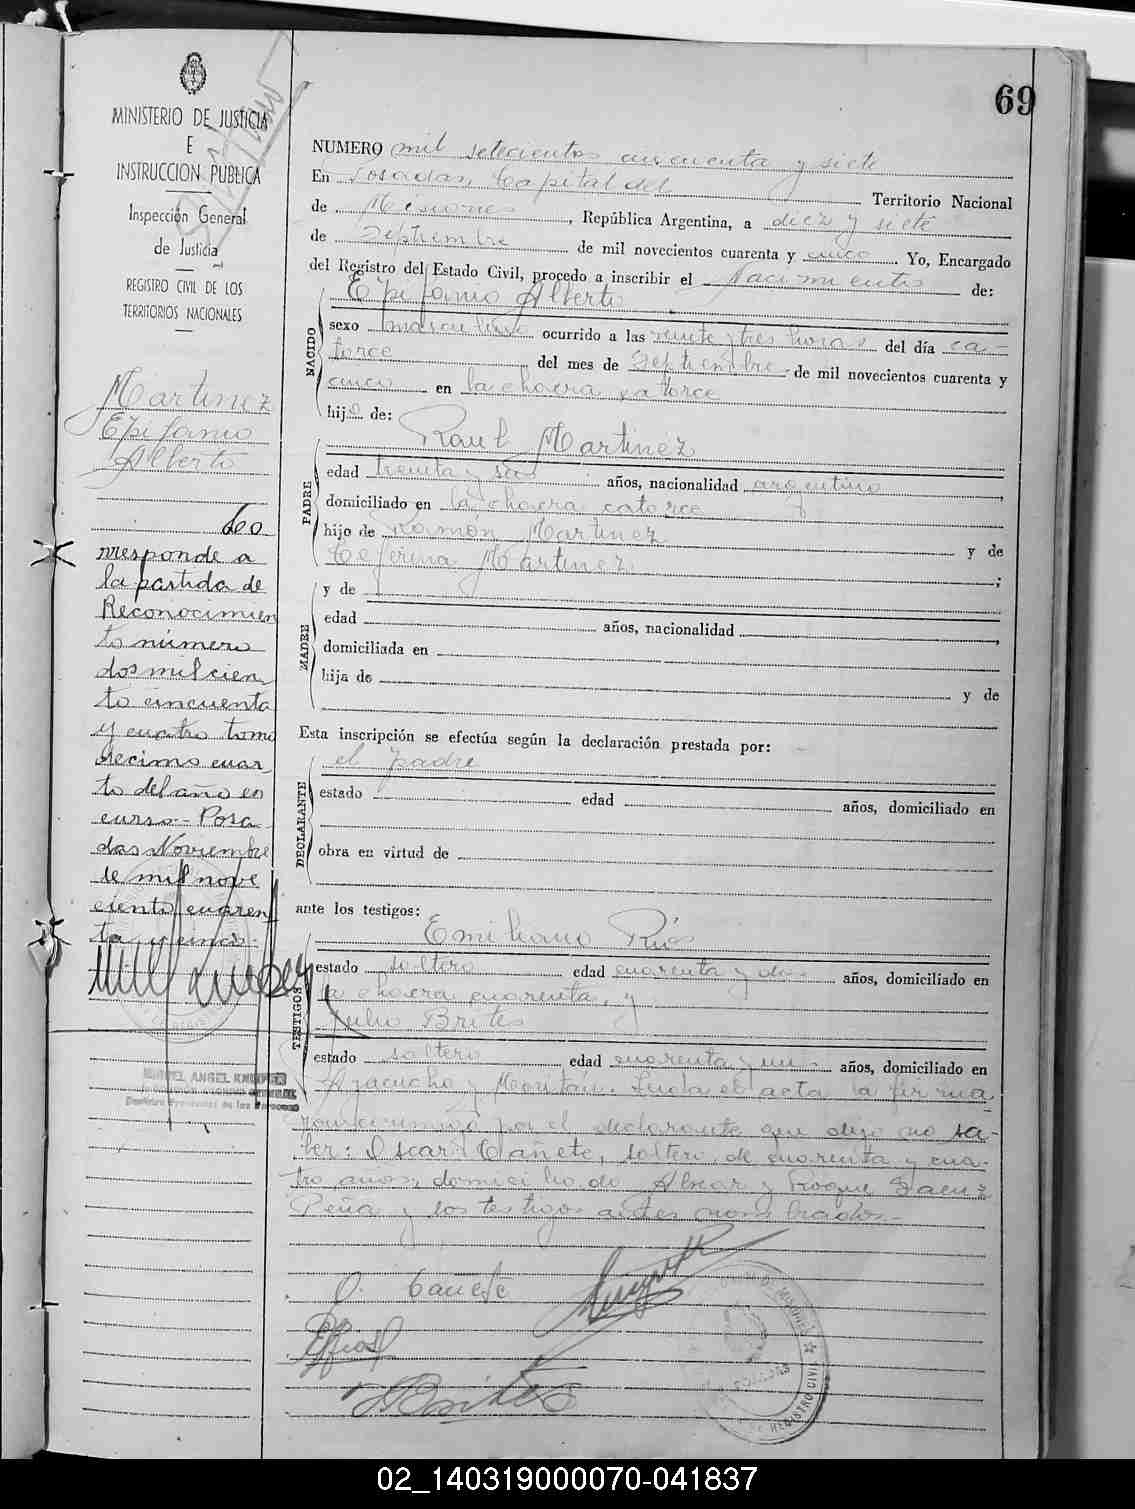 69
MINISTERIO DE JUSTICIA
E
INSTRUCCION PUBLICA
Inspección General
de Justicia
REGISTRO CIVIL DE LOS
TERRITORIOS NACIONALES
Martinez
Epifanio
Alberto
Co
rresponde a
la partida de
Reconocimien
to número
dos mil cien
to cincuenta
y cuatro tomo
decimo cuar
to del año en
curso.- Posa
das Noviembre
de mil nove
ciento cuaren
ta y cinco.-
NUMERO mil setecientos cincuenta y siete
En Posadas, Capital del Territorio Nacional
de Misiones, República Argentina, a diez y siete
de Septiembre de mil novecientos cuarenta y cinco Yo, Encargado
del Registro del Estado Civil, procedo a inscribir el Nacimiento de:
NACIDO
Epifanio Alberto
sexo masculino ocurrido a las veinte y tres horas del día ca-
torce del mes de Septiembre de mil novecientos cuarenta y
cinco en la chacra catorce
hijo de:
PADRE
Raul Martinez
edad treinta y seis años, nacionalidad argentino,
domiciliado en la chacra catorce
hijo de Ramon Martinez y de
Ceferina Martinez;
MADRE
y de
edad años, nacionalidad,
domiciliada en
hija de y de
Esta inscripción se efectúa según la declaración prestada por:
DECLARANTE
el padre
estado edad años, domiciliado en
obra en virtud de
ante los testigos:
TESTIGOS
Emiliano Rios
estado soltero edad cuarenta y dos años, domiciliado en
la chacra cuarenta, y
Julio Brites
estado soltero edad cuarenta y un años, domiciliado en
Ayacucho y Leida el acta la firma
por el declarante que dijo no sa-
ber: Oscar Cañete, soltero, de cuarenta y cua-
tro años, domicilio. Alvear y Roque Saenz
Peña y los testigos antes nombrados.-
O. Cañete
MIGUEL ANGEL
REGISTRO CIVIL
02_140319000070-041837